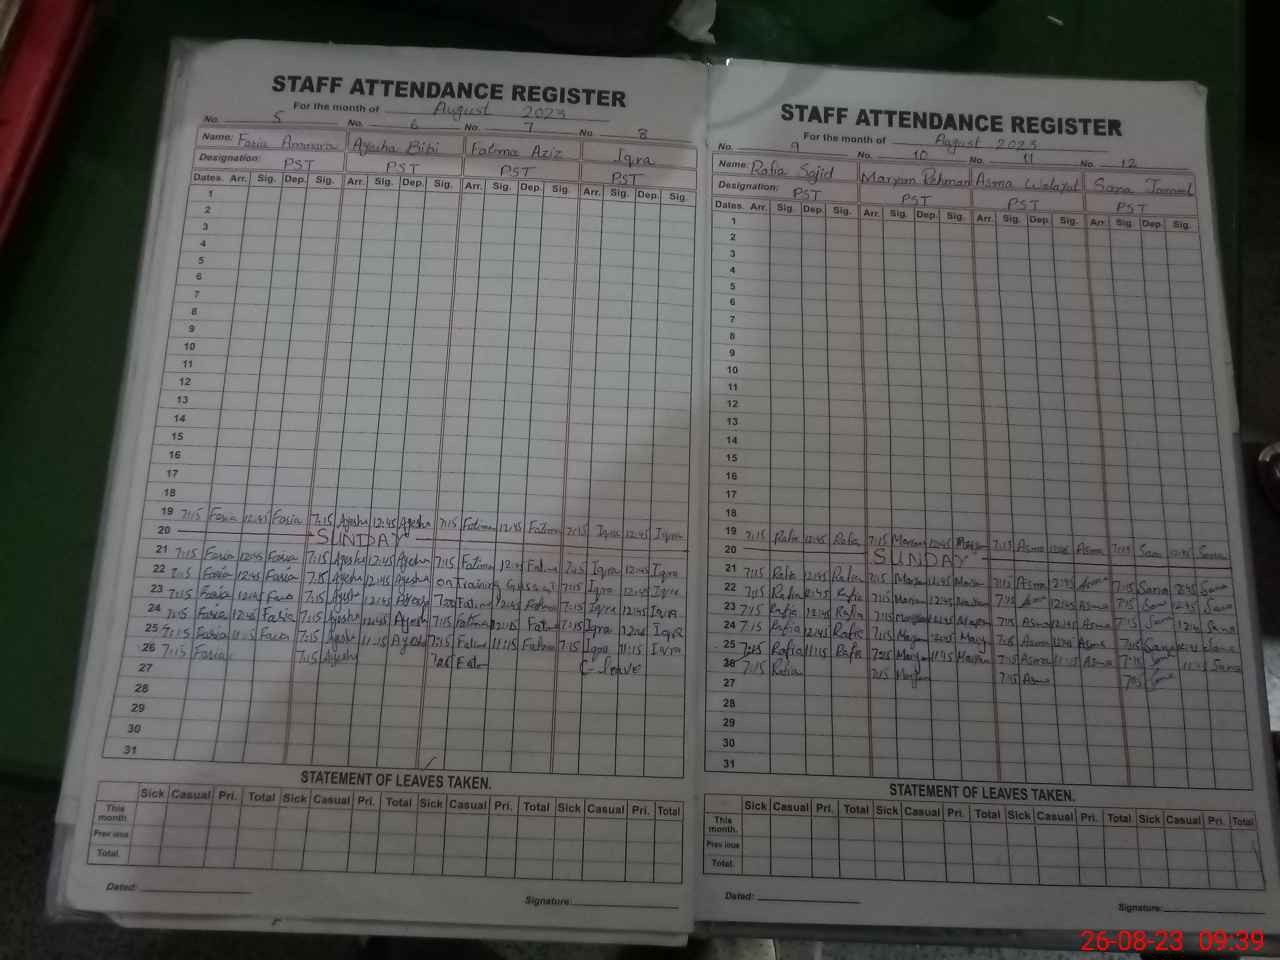 STAFF ATTENDANCE REGISTER
For the month of August 2023
No. 5 No. 6 No. 7 No. 8
Name: Ayesha Bibi Fatima Aziz Iqra
Designation: PST PST PST PST
Dates. Arr. Sig. Dep. Sig. Arr. Sig. Dep. Sig. Arr. Sig. Dep. Sig. Arr. Sig. Dep. Sig.
1
2
3
4
5
6
7
8
9
10
11
12
13
14
15
16
17
18
19 7:15 Faria 12:45 Faria 7:15 Ayesha 12:45 Ayesha 7:15 Fatima 12:45 Fatima 7:15 Iqra 12:45 Iqra
20 SUNDAY
21 7:15 Faria 12:45 Faria 7:15 Ayesha 12:45 Ayesha 7:15 Fatima 12:45 Fatima 7:15 Iqra 12:45 Iqra
22 7:15 Faria 12:45 Faria 7:15 Ayesha 12:45 Ayesha on Training 7:15 Iqra 12:45 Iqra
23 7:15 Faria 12:45 Faria 7:15 Ayesha 12:45 Ayesha Fatima 12:45 Fatima 7:15 Iqra 12:45 Iqra
24 7:15 Faria 12:45 Faria 7:15 Ayesha 12:45 Ayesha 7:15 Fatima Fatima 7:15 Iqra Iqra
25 7:15 Faria 11:15 Faria 7:15 Ayesha 11:15 Ayesha 7:15 Fatima 11:15 Fatima 7:15 Iqra 11:15 Iqra
26 7:15 Faria 7:15 Ayesha C-leave
27
28
29
30
31
STATEMENT OF LEAVES TAKEN.
Sick Casual Pri. Total Sick Casual Pri. Total Sick Casual Pri. Total Sick Casual Pri. Total
This month.
Prev ious
Total.
Dated: Signature:
STAFF ATTENDANCE REGISTER
For the month of August 2023
No. 9 No. 10 No. 11 No. 12
Name: Rafia Sajid Maryam Rehman Asma Sana
Designation: PST PST PST PST
Dates. Arr. Sig. Dep. Sig. Arr. Sig. Dep. Sig. Arr. Sig. Dep. Sig. Arr. Sig. Dep. Sig.
1
2
3
4
5
6
7
8
9
10
11
12
13
14
15
16
17
18
19 7:15 Rafia 12:45 Rafia 7:15 Maryam 12:45 Maryam 7:15 Asma 12:45 Asma 7:15 Sana 12:45 Sana
20 SUNDAY
21 7:15 Rafia 12:45 Rafia 7:15 Maryam 12:45 Maryam 7:15 Asma 12:45 Asma 7:15 Sana 12:45 Sana
22 7:15 Rafia 12:45 Rafia 7:15 Maryam 12:45 Maryam 7:15 Asma 12:45 Asma 7:15 Sana 12:45 Sana
23 7:15 Rafia 12:45 Rafia 7:15 Maryam 12:45 Maryam 7:15 Asma 12:45 Asma 7:15 Sana Sana
24 7:15 Rafia 12:45 Rafia 7:15 Maryam Maryam 7:15 Asma Asma 7:15 Sana Sana
25 7:15 Rafia 11:15 Rafia 7:15 Maryam 11:15 Maryam 7:15 Asma 11:15 Asma 7:15 Sana 11:15 Sana
26 7:15 Rafia 7:15 Maryam 7:15 Asma 7:15 Sana
27
28
29
30
31
STATEMENT OF LEAVES TAKEN.
Sick Casual Pri. Total Sick Casual Pri. Total Sick Casual Pri. Total Sick Casual Pri. Total
This month.
Prev ious
Total.
Dated: Signature:
26-08-23 09:39